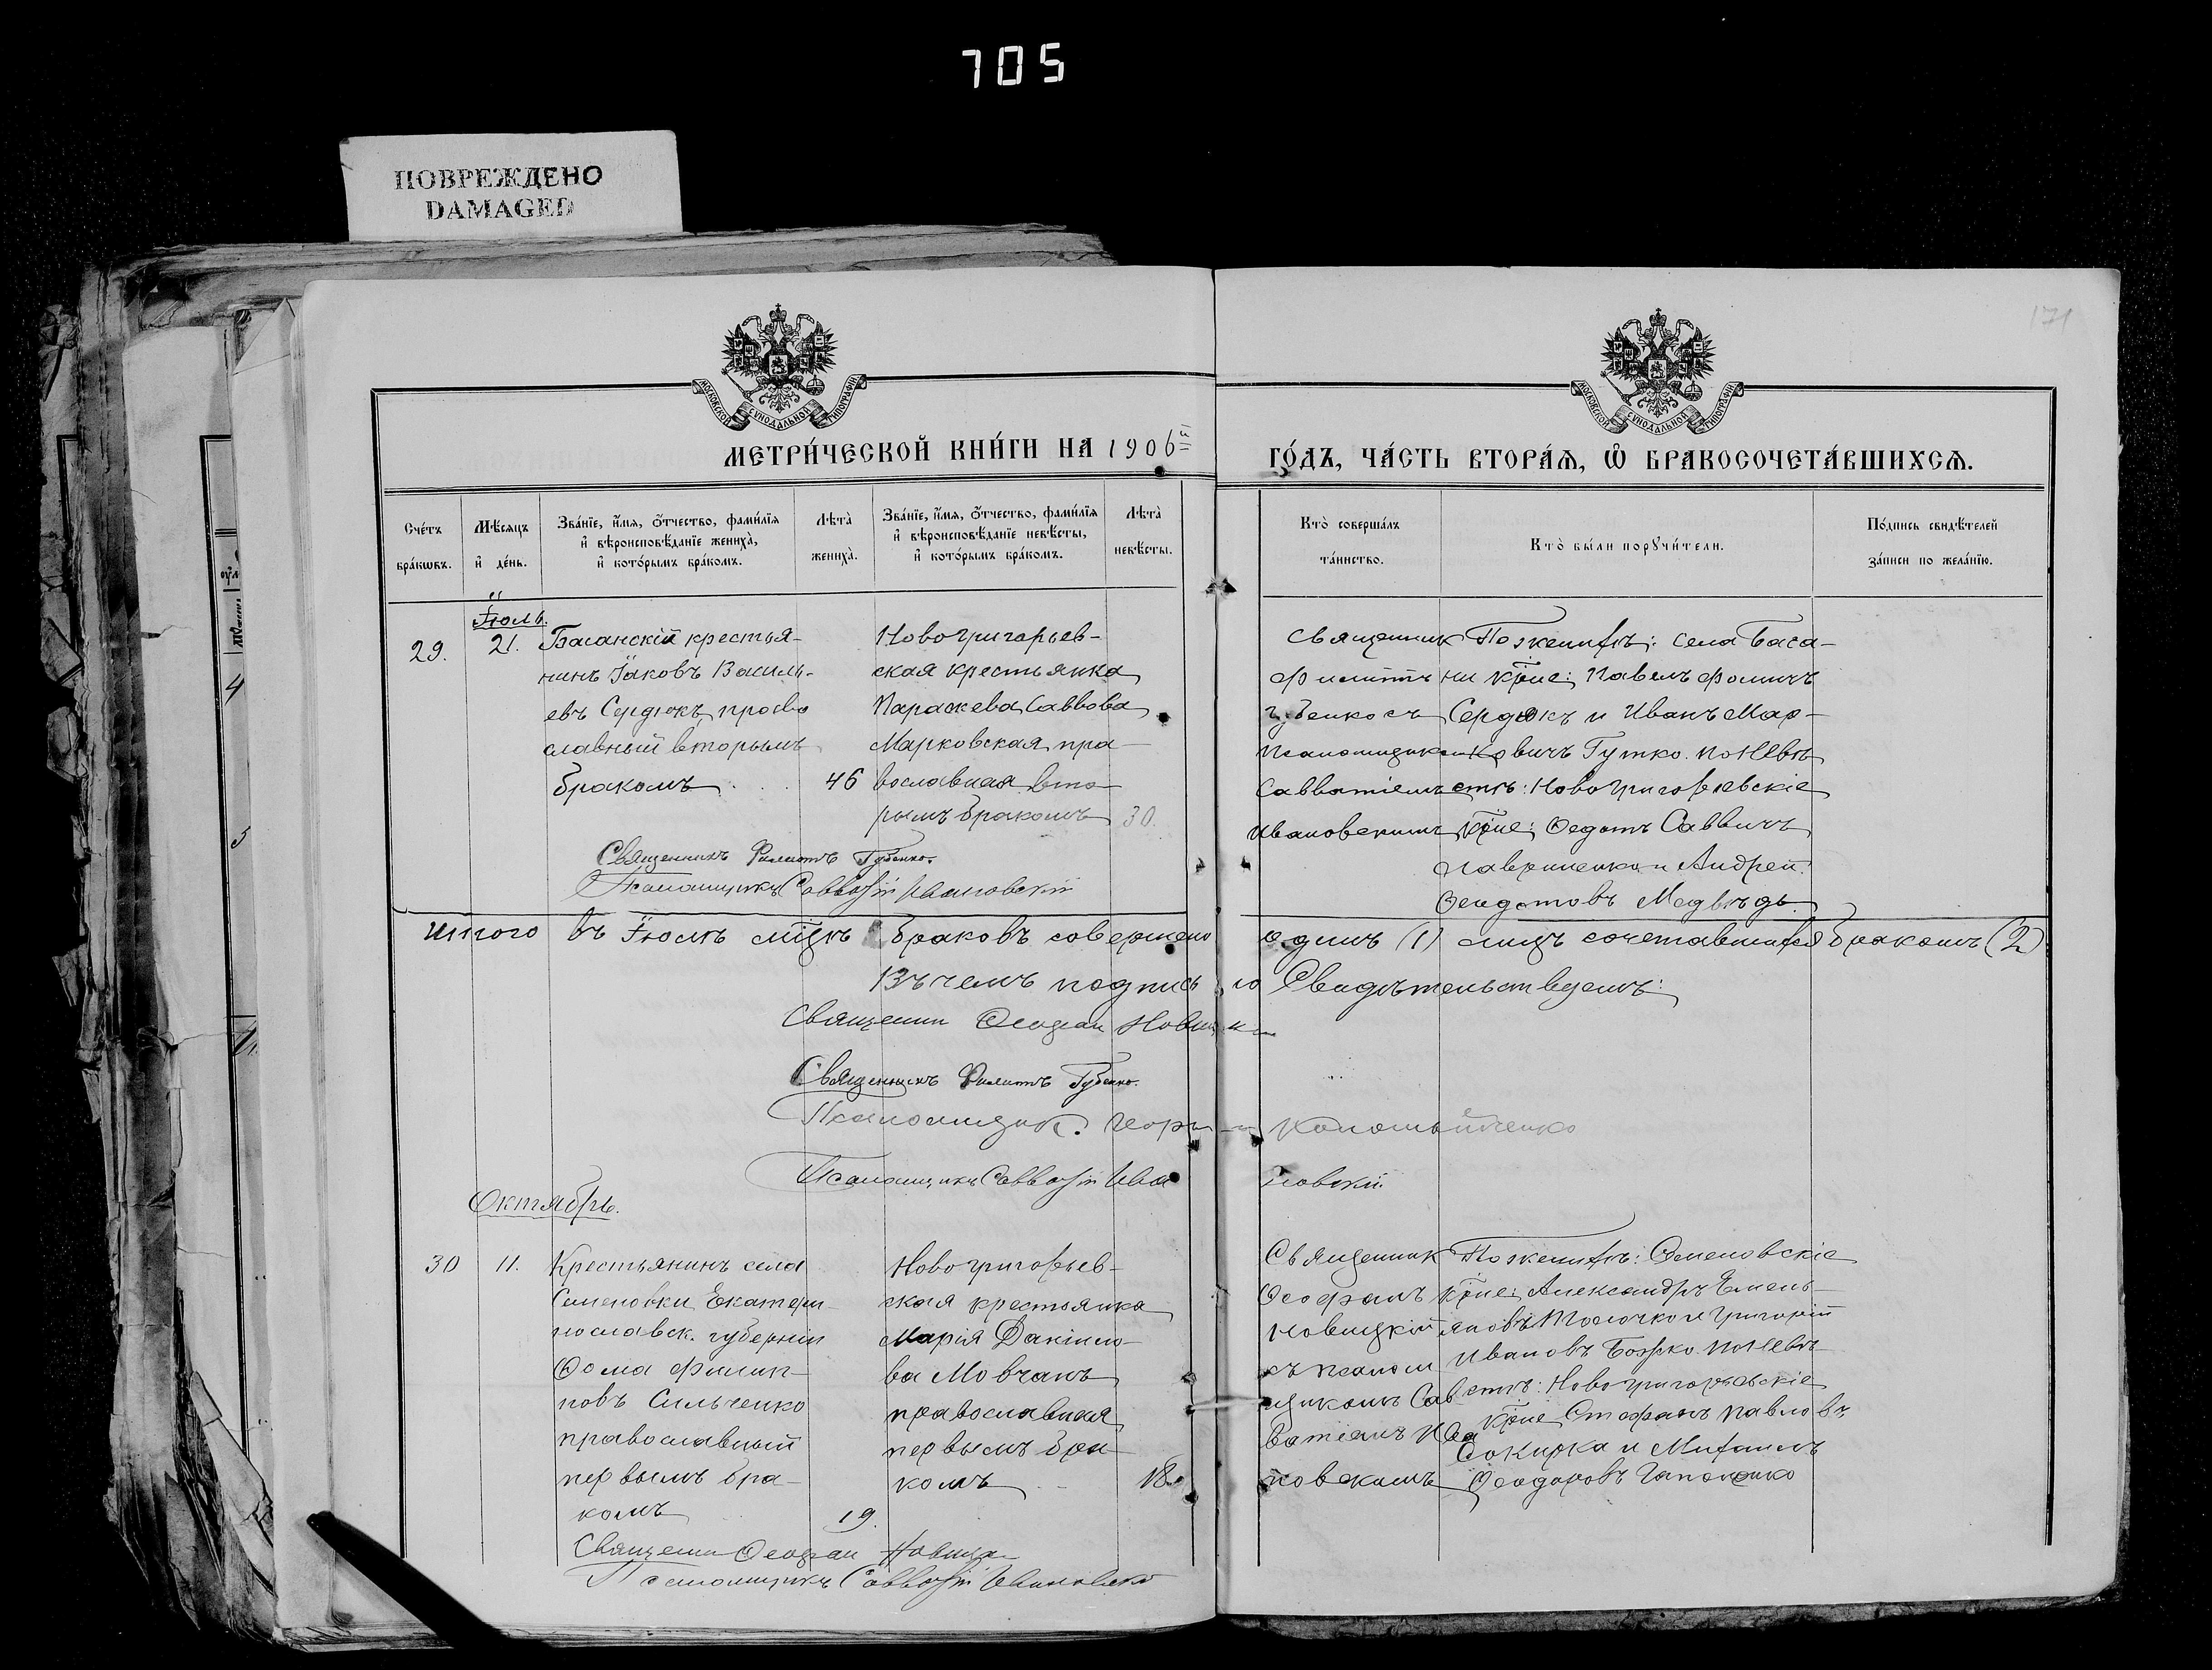 705
ПОВРЕЖДЕНО
DAMAGED
171
МОСКОВСКОЙ СѴНОДАЛЬНОЙ ТИПОГРАФІИ
МОСКОВСКОЙ СѴНОДАЛЬНОЙ ТИПОГРАФІИ
МЕТРИ́ЧЕСКОЙ КНИ́ГИ НА 1906й
ГО́ДЪ, ЧА́СТЬ ВТОРА́Ѧ, Ѽ БРАКОСОЧЕТА́ВШИХСѦ.
Сче́тъ бра́кѡвъ.
Мѣ́сяцъ и҆ де́нь.
Зва́нїе, и҆́мя, ѻ҆́тчество, фами́лїя
и҆ вѣроисповѣ́данїе жениха̀,
и҆ кото́рымъ бра́комъ.
Лѣта̀ жениха̀.
Зва́нїе, и҆́мя, ѻ҆́тчество, фами́лїя
и҆ вѣроисповѣ́данїе невѣ́сты,
и҆ кото́рымъ бра́комъ.
Лѣта̀ невѣ́сты.
Кто̀ соверша́лъ
та́инство.
Кто̀ бы́ли порꙋчи́тели.
По́дпись свидѣ́телей
за́писи по жела́нїю.
Іюль.
29.
21.
Басанскій крестья-
нинъ Іаковъ Василь-
евъ Сердюкъ, право
славный вторымъ
бракомъ
46
Новогригорьев-
ская крестьянка
Параскева Саввова
Марковская, пра-
вославная, вто-
рымъ бракомъ
30.
Священник
Филиттъ
Губенко съ
Псаломщиком
Савватіемъ
Ивановскимъ
По женихѣ: села Баса-
ни крне: Павелъ Фомичъ
Сердюкъ и Иванъ Мар-
ковичъ Гутко. По невѣ
стѣ: Новогригорьевскіе
крне: Ѳедотъ Саввичъ
Лавриненко и Андрей
Ѳедотовъ Медвѣдь.
Священникъ Филиттъ Губенко.
Псаломщикъ Савватій Ивановскій
Итого въ Іюлѣ мѣцѣ браковъ совершено одинъ (1) лицъ сочетавшихся бракомъ (2)
Въ чемъ подписью Свидѣтельствуемъ:
Священник Ѳеофан Новицки
Священникъ Филиттъ Губенко.
Псаломщик. Георгій Коломыйченко
Псаломщикъ Савватій Ивановскій.
Октябрь.
30
11.
Крестьянинъ села
Семеновки, Екатери-
нославск. губерніи
Ѳома Филип-
повъ Сильченко
православный
первымъ бра-
комъ
19.
Новогригорьев-
ская крестьянка
Марія Даніило-
ва Мовчанъ
православная
первымъ бра-
комъ
18.
Священник
Ѳеофанъ
Новицкій
съ псалом
щикомъ Сав
ватіемъ Ива
новскимъ
По женихѣ: Семеновскіе
крне: Александръ Емель-
яновъ Толочко и Григорій
Ивановъ Божко. По невѣ
стѣ: Новогригорьевскіе
крне Стефанъ Павловъ
Сокирка и Михаилъ
Ѳеодоровъ Гапоненко
Священник Ѳеофан Новицк
Псаломщикъ Савватій Ивановскій